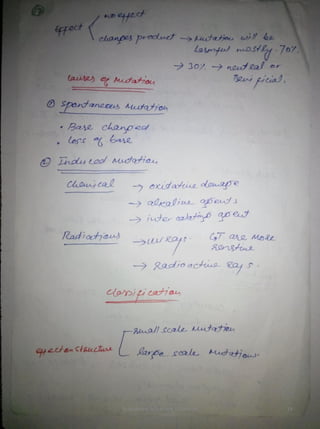 no effect
effect
changes product → Mutation will be
harmful mostly. 70%.
→ 30% → neutral or
Beneficial.
Causes of Mutation
① Spontaneous Mutation
• Base changed
• loss of base
② Induced Mutation
Chemical → oxidative damage
→ alkaline agents
→ inter calating agent
Radiations → UV Rays GT are More
Sensitive
→ Radioactive Rays.
Classification
Small scale Mutation
effect on structure
large scale Mutations